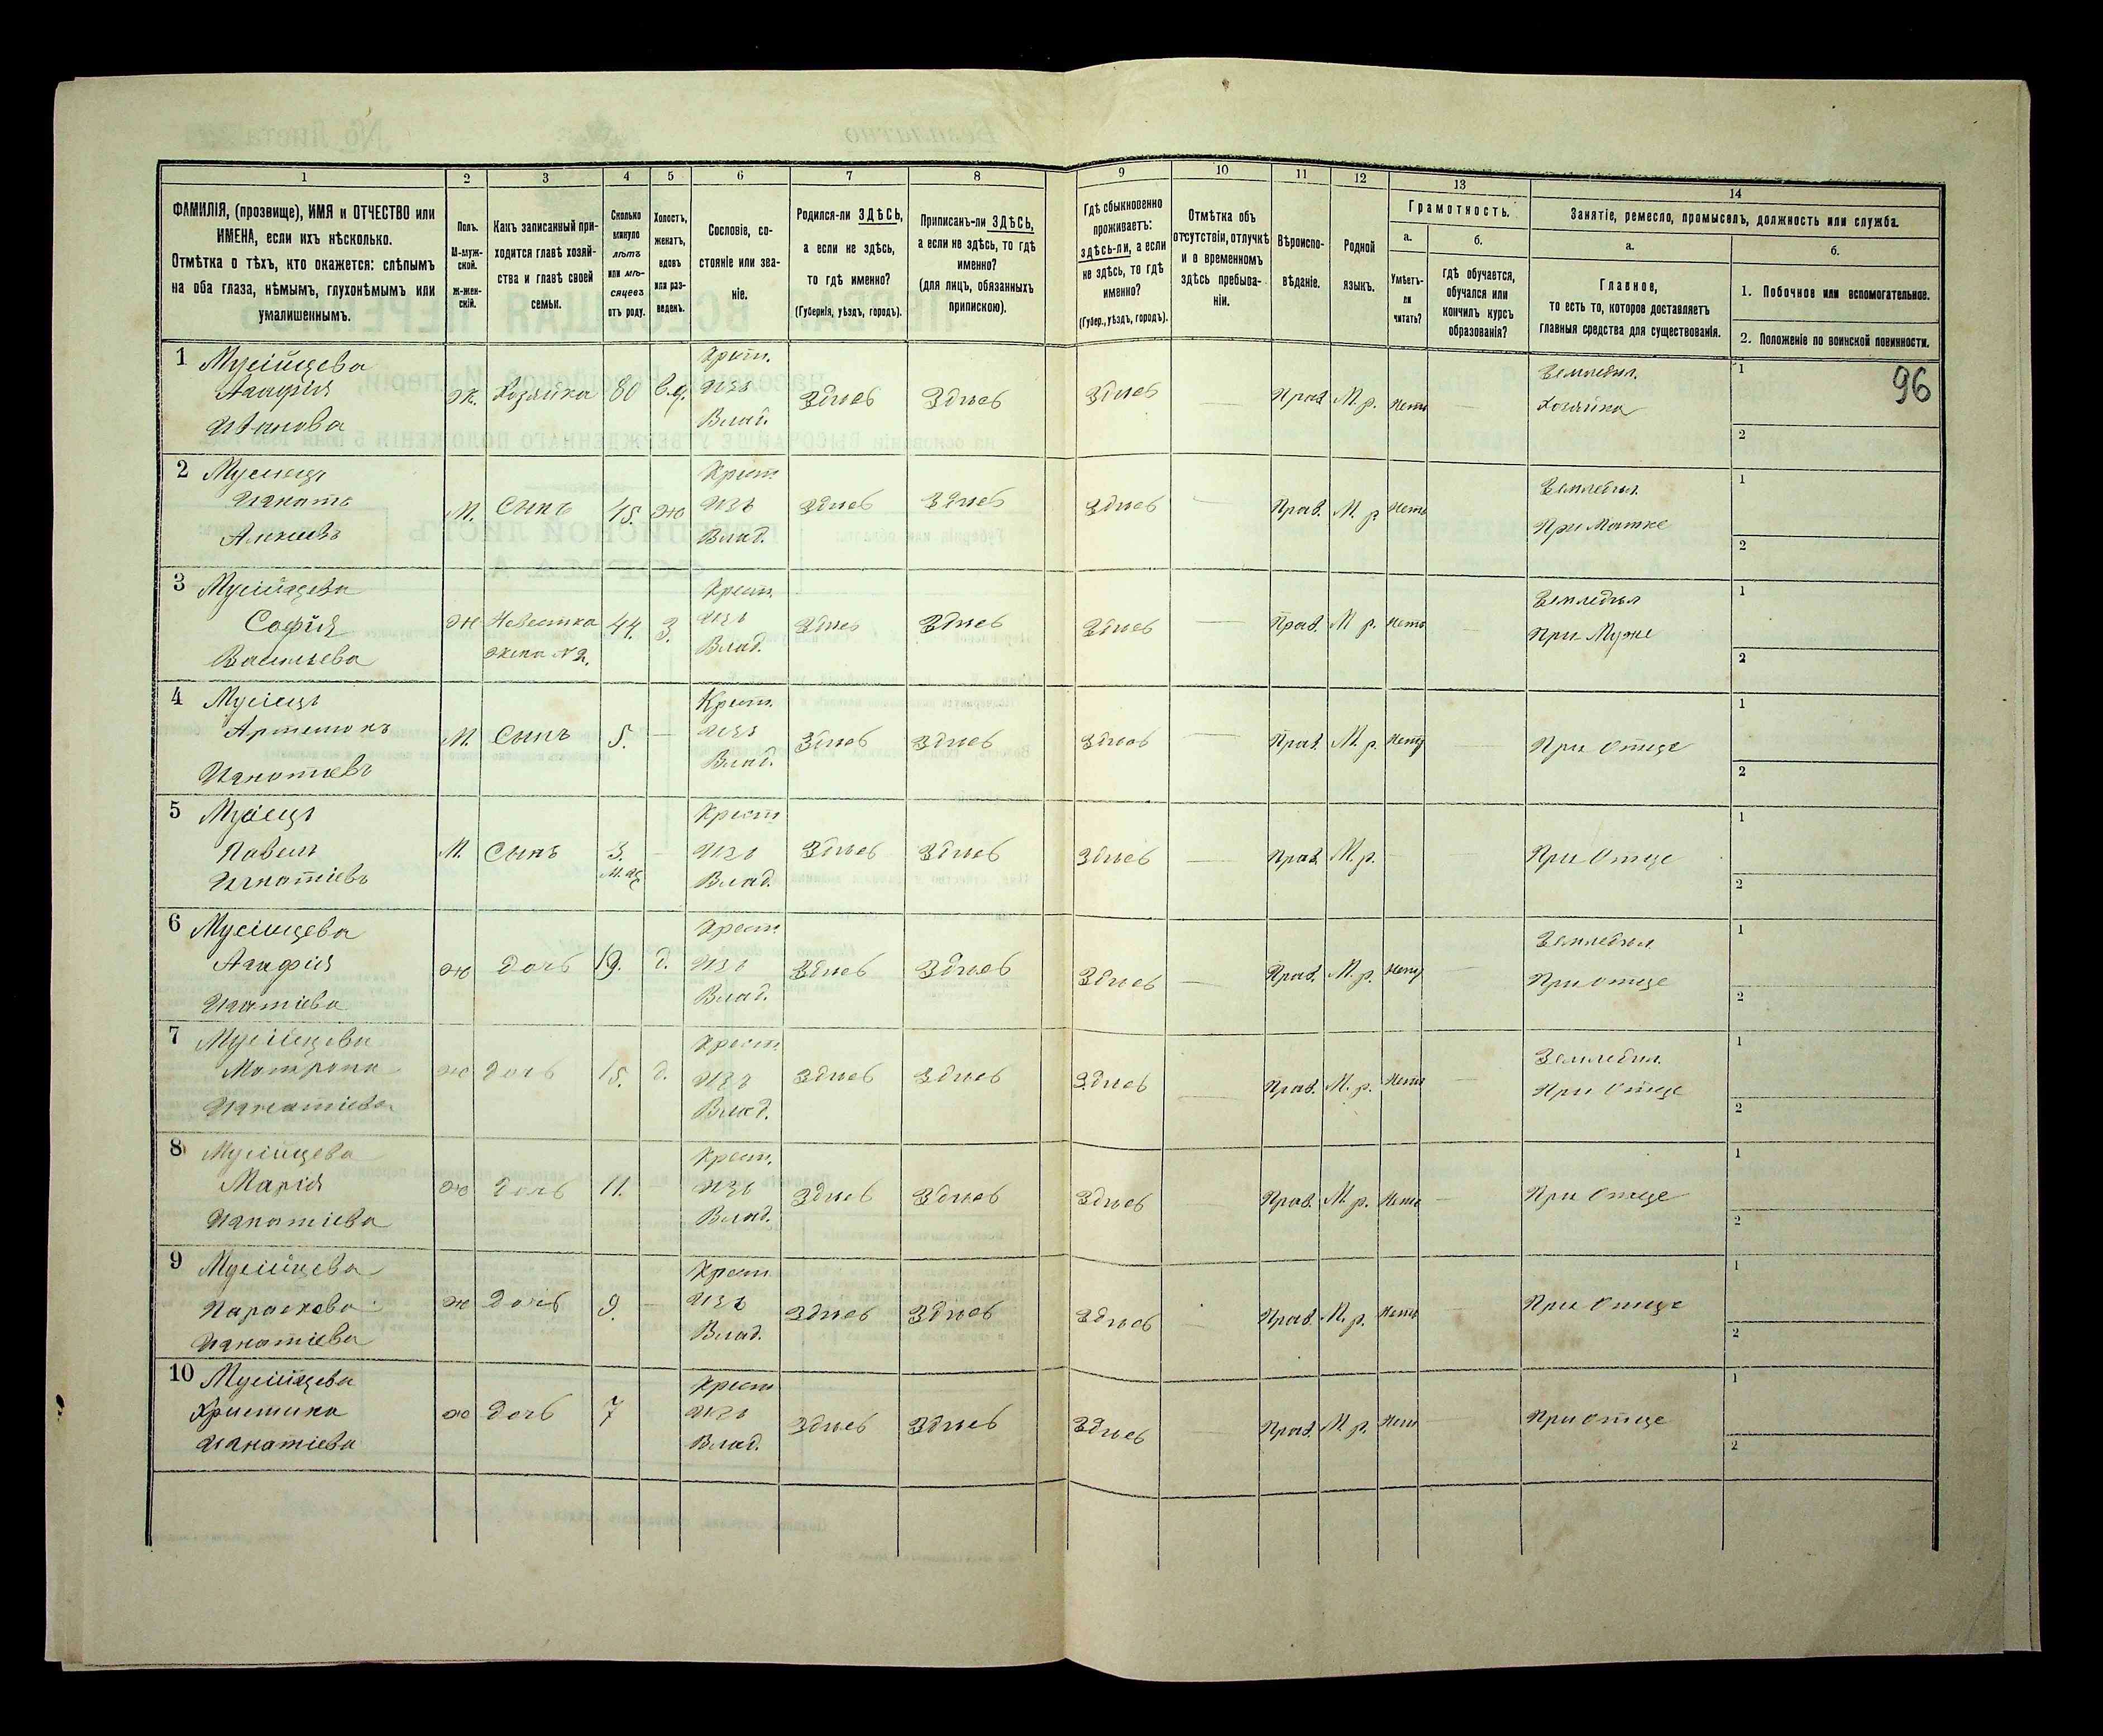 1 2 3 4 5 6 7 8 9 10 11 12 13 14
ФАМИЛІЯ, (прозвище), ИМЯ и ОТЧЕСТВО или
ИМЕНА, если ихъ нѣсколько.
Отмѣтка о тѣхъ, кто окажется: слѣпымъ
на оба глаза, нѣмымъ, глухонѣмымъ или
умалишеннымъ.
Полъ.
М-муж-
ской.
Ж-жен-
скій.
Какъ записанный при-
ходится главѣ хозяй-
ства и главѣ своей
семьи.
Сколько
минуло
лѣтъ
или мѣ-
сяцевъ
отъ роду.
Холостъ,
женатъ,
вдовъ
или раз-
веденъ.
Сословіе, со-
стояніе или зва-
ніе.
Родился-ли ЗДѢСЬ,
а если не здѣсь,
то гдѣ именно?
(Губернія, уѣздъ, городъ).
Приписанъ-ли ЗДѢСЬ,
а если не здѣсь, то гдѣ
именно?
(для лицъ, обязанныхъ
припискою).
Гдѣ обыкновенно
проживаетъ:
здѣсь-ли, а если
не здѣсь, то гдѣ
именно?
(Губер., уѣздъ, городъ).
Отмѣтка объ
отсутствіи, отлучкѣ
и о временномъ
здѣсь пребыва-
ніи.
Вѣроиспо-
вѣданіе.
Родной
языкъ.
Грамотность.
а.
Умѣетъ-
ли
читать?
б.
гдѣ обучается,
обучался или
кончилъ курсъ
образованія?
Занятіе, ремесло, промыселъ, должность или служба.
а.
Главное,
то есть то, которое доставляетъ
главныя средства для существованія.
б.
1. Побочное или вспомогательное.
2. Положеніе по воинской повинности.
96
1 Мусійцева
Агафія
Иванова
ж. Хозяйка 80 вд.
Крест.
изъ
Влад.
Здѣсь Здѣсь Здѣсь — Прав. М. р. Нетъ —
Земледѣл.
Хозяйка
1
2
2 Мусіецъ
Игнатъ
М. Сынъ 45. ж
Крест.
изъ
Влад.
Здѣсь Здѣсь Здѣсь — Прав. М. р. Нетъ
Земледѣл.
При Матке
1
2
3 Мусійцева
Софія
Васильева
ж Невестка
жена № 2.
44. З.
Крест.
изъ
Влад.
Здѣсь Здѣсь Здѣсь — Прав. М. р. Нетъ —
Земледѣл
При Муже
1
2
4 Мусіецъ
Игнатіевъ
М. Сынъ 5. —
Крест.
изъ
Влад.
Здѣсь Здѣсь Здѣсь — Прав. М. р. Нетъ —
При Отце
1
2
5 Мусіецъ
Павелъ
Игнатіевъ
М. Сынъ 3.
—
Крест.
изъ
Влад.
Здѣсь Здѣсь Здѣсь — Прав. М. р. — —
При Отце
1
2
6 Мусійцева
Агафія
Игнатіева
ж дочь 19. д.
Крест.
изъ
Влад.
Здѣсь Здѣсь Здѣсь — Прав. М. р. Нетъ —
Земледѣл
При отце
1
2
7 Мусійцева
Матрона
Игнатіева
ж дочь 15. д.
Крест.
изъ
Влад.
Здѣсь Здѣсь Здѣсь — Прав. М. р. Нетъ —
Земледѣл.
При Отце
1
2
8 Мусійцева
Марія
Игнатіева
ж дочь 11.
Крест.
изъ
Влад.
Здѣсь Здѣсь Здѣсь — Прав. М. р. Нетъ —
При Отце
1
2
9 Мусійцева
Параскева
Игнатіева
ж дочь 9. —
Крест.
изъ
Влад.
Здѣсь Здѣсь Здѣсь — Прав. М. р. Нетъ —
При Отце
1
2
10 Мусійцева
Христина
Игнатіева
ж дочь 7
Крест
изъ
Влад.
Здѣсь Здѣсь Здѣсь — Прав. М. р. Нетъ —
При отце
1
2